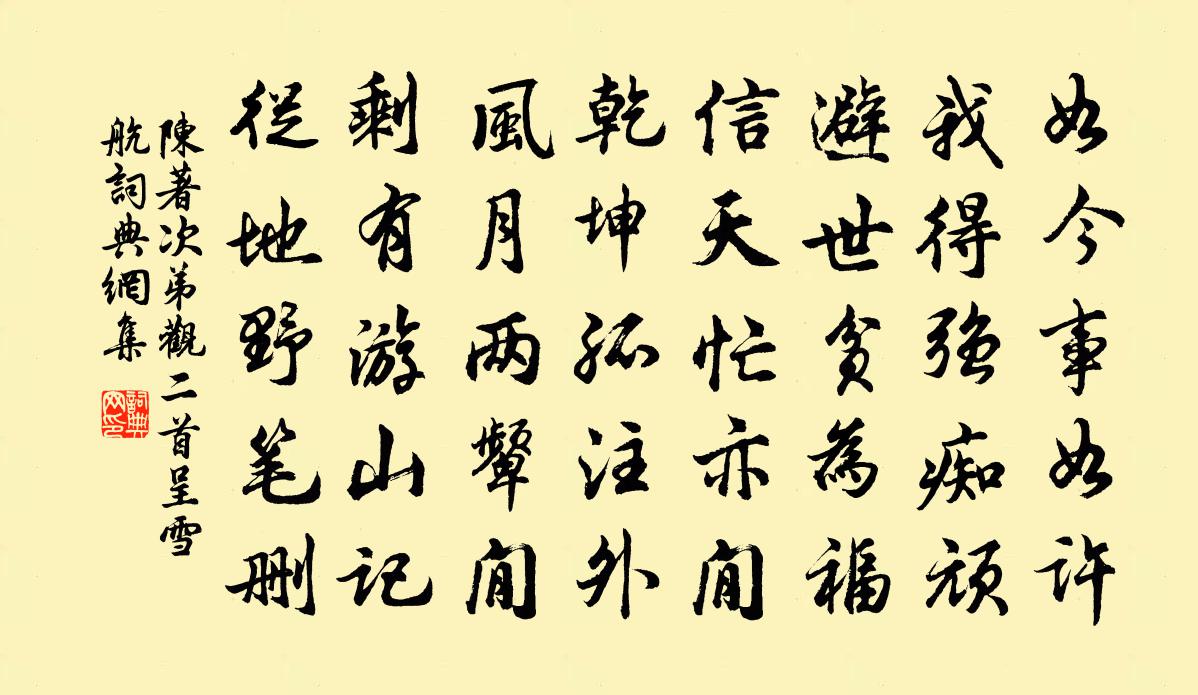 如今事如許
我得强痴頑
避世貧為福
信天忙亦閒
乾坤孤注外
風月两顰閒
剩有游山記
從地野笔刪
陳著次弟觀二首呈雪
航詞典網集
詞典网印